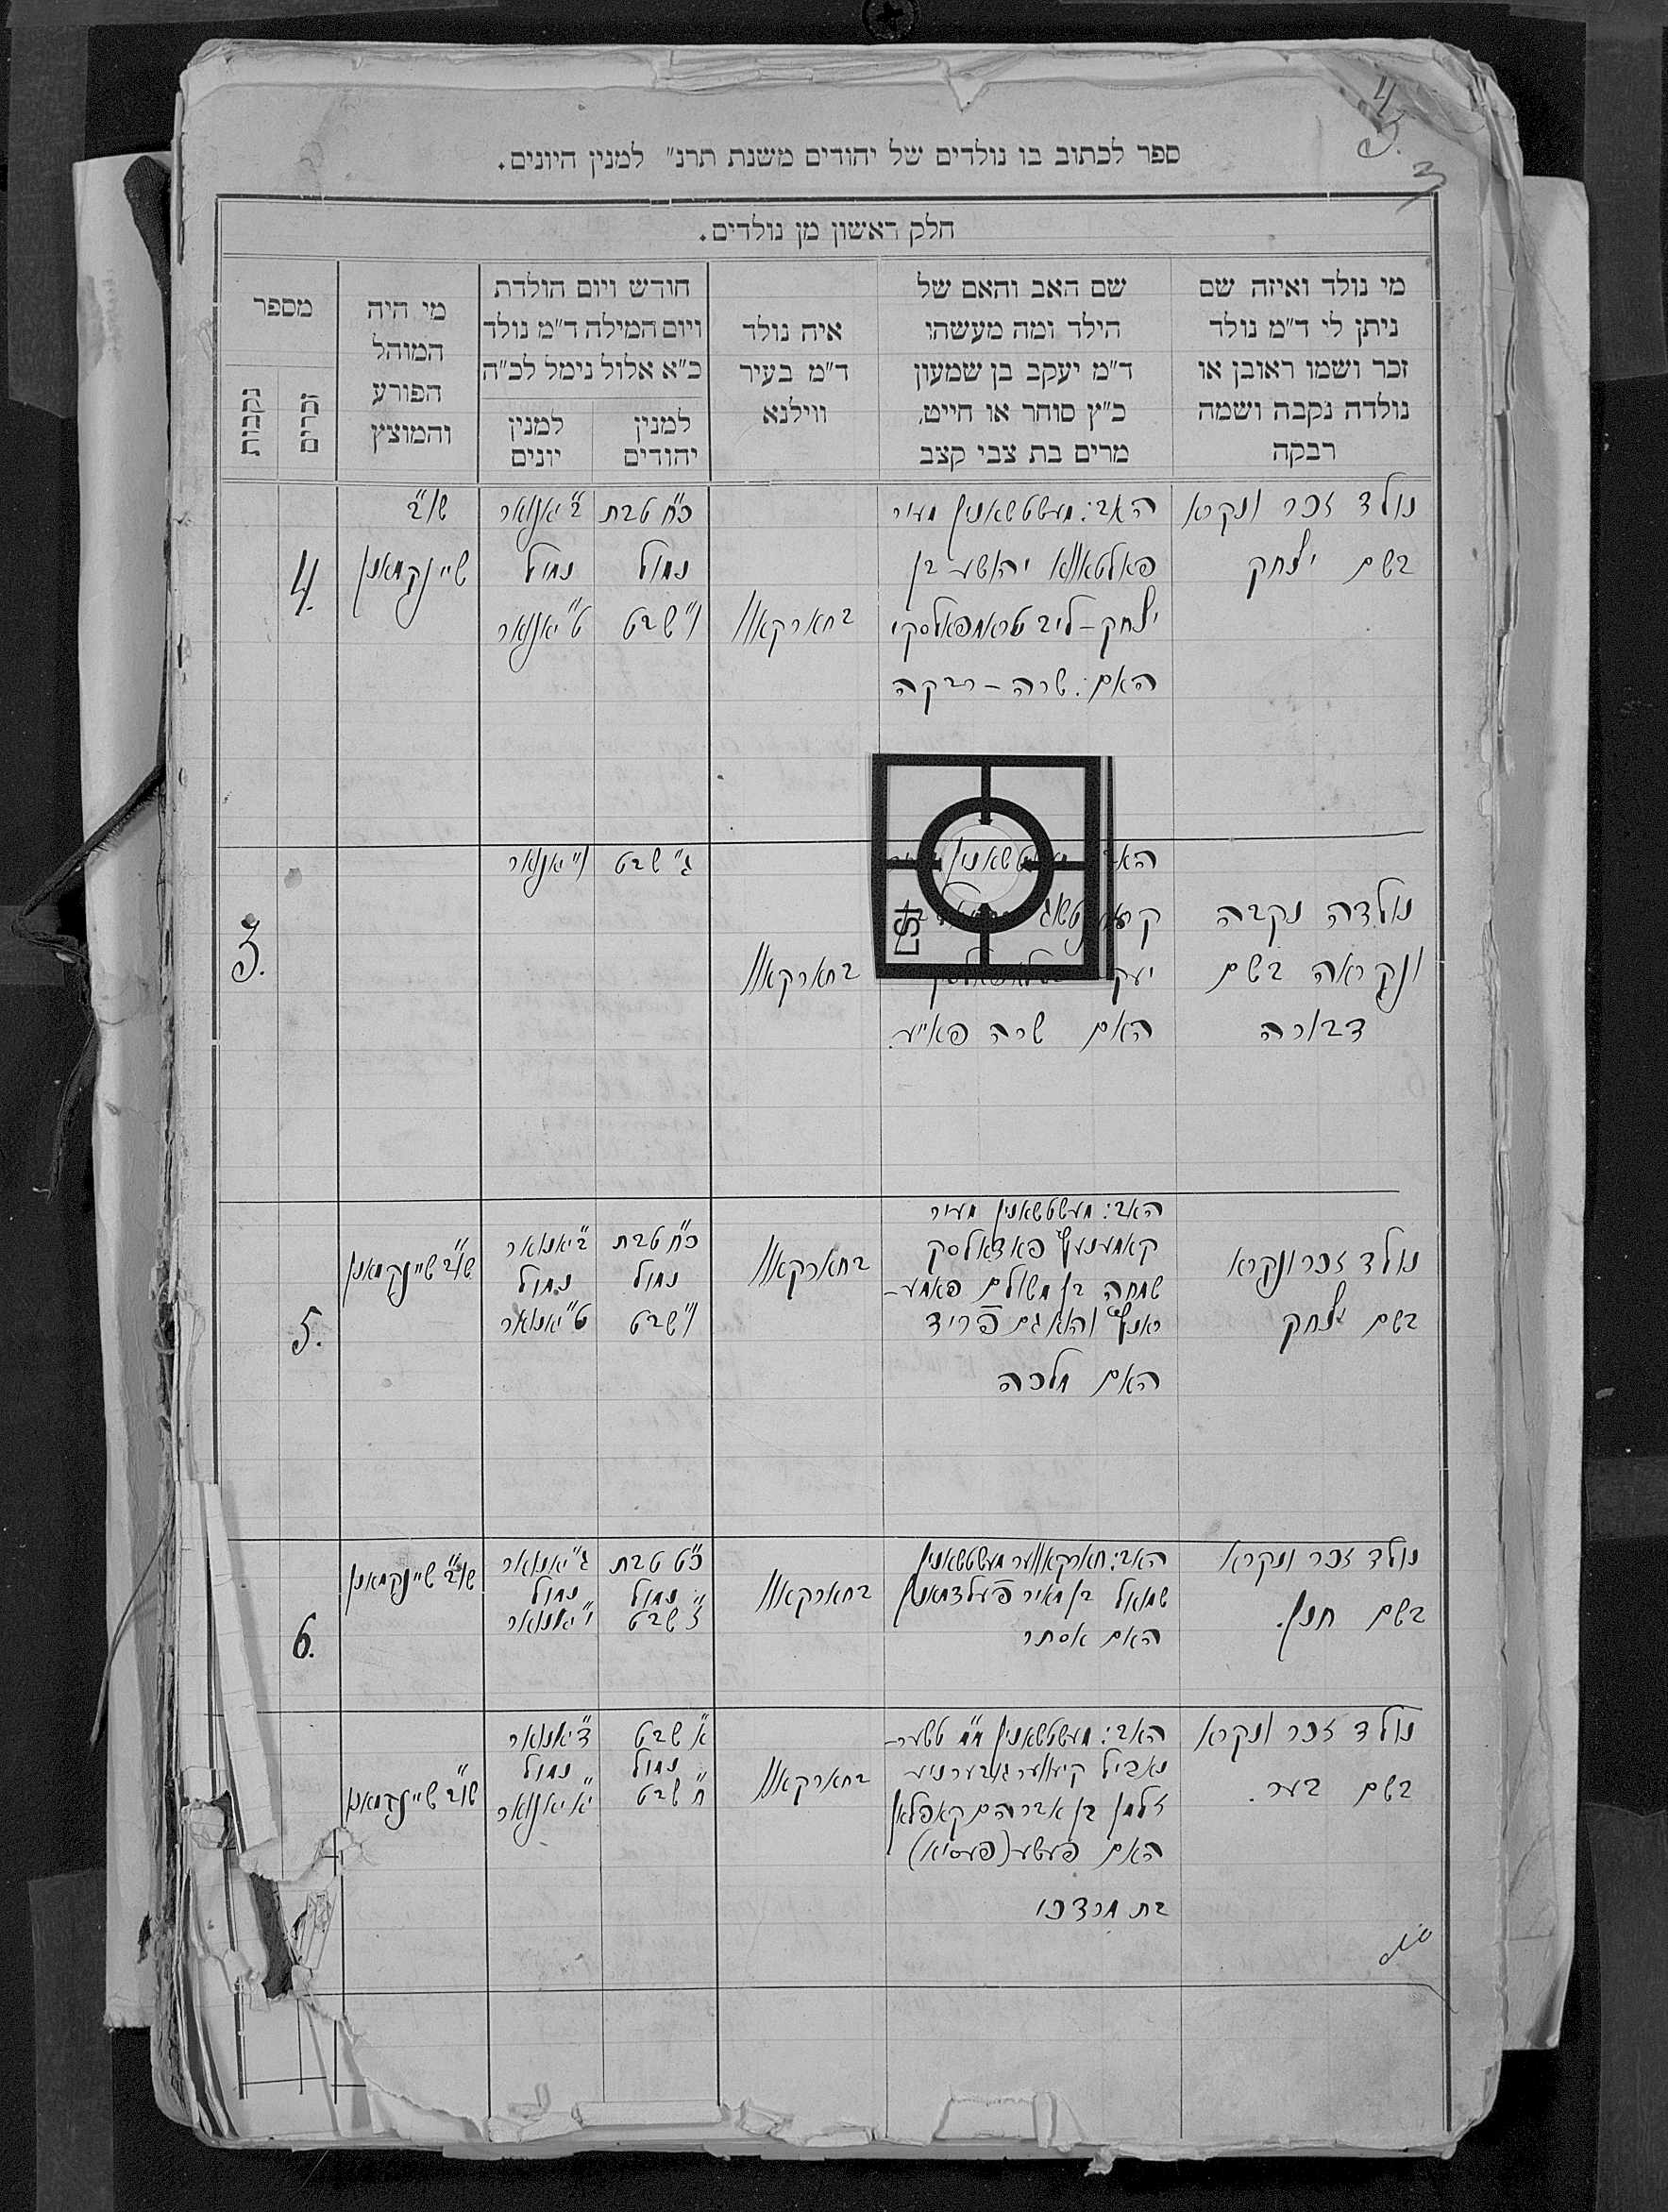 ספר לכתוב בו נולדים של יהודים משנת תרנ״ למנין היונים.
3
חלק ראשון מן נולדים.
מי נולד ואיזה שם
ניתן לי ד״מ נולד
זכר ושמו ראובן או
נולדה נקבה ושמה
רבקה
שם האב והאם של
הילד ומה מעשהו
ד״מ יעקב בן שמעון
כ״ץ סוחר או חייט,
מרים בת צבי קצב
איה נולד
ד״מ בעיר
ווילנא
חודש ויום הולדת
ויום המילה ד״מ נולד
כ״א אלול נימל לכ״ה
למנין
יהודים
למנין
יונים
מי היה
המוהל
הפורע
והמוצץ
מספר
זכרים
נקבות
נולד זכר ונקרא
בשם יצחק
האב: מעשטשאנין מעיר
פאלטאווא יהושע בן
יצחק-ליב
האם: שרה-רבקה
בחארקאוו
כ״ח טבת
נמול
ו״ שבט
ב״ יאנואר
נמול
ט״ יאנואר
שו״ב
שיינקמאנן
4.
נולדה נקבה
ונקראה בשם
דבורה
האב
האם שרה פאייע.
בחארקאוו
ג״ שבט
ו״ יאנואר
3.
נולד זכר ונקרא
בשם יצחק
האב: מעשטשאנין מעיר
קאמענעץ פאדאלסק
שמחה בן משולם פאמע-
ראנץ והוא גם פריד
האם מלכה
בחארקאוו
כ״ח טבת
נמול
ו״ שבט
ב״ יאנואר
נמול
ט״ יאנואר
שו״ב שיינקמאנן
5.
נולד זכר ונקרא
בשם חנן.
האב: חארקאווער מעשטשאנין
שמואל בן מאיר פעלדמאנן
האם אסתר
בחארקאוו
כ״ט טבת
נמול
ז״ שבט
ג״ יאנואר
נמול
י״ יאנואר
שו״ב שיינקמאנן
6.
נולד זכר ונקרא
בשם בער.
האב: מעשטשאנין מ״מ טשער-
נאביל קיעווער גובערניע
זלמן בן אברהם קאפלאן
האם פעשע (פעסיא)
בת מרדכי
בחארקאוו
א״ שבט
נמול
ח״ שבט
ד״ יאנואר
נמול
י״א יאנואר
שו״ב שיינקמאנן